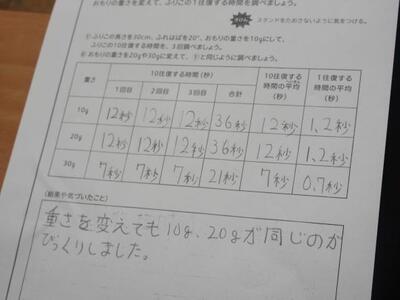 おもりの重さを変えて、ふりこの1往復する時間を調べましょう。
スタンドをたおさないように気をつける。
① ふりこの長さを30cm、ふれはばを20°、おもりの重さを10gにして、
ふりこの10往復する時間を、3回調べましょう。
② おもりの重さを20gや30gに変えて、①と同じように調べましょう。
重さ 10往復する時間(秒) 10往復する時間の平均(秒) 1往復する時間(秒)
1回目 2回目 3回目 合計
10g 12秒 12秒 12秒 36秒 12秒 1,2秒
20g 12秒 12秒 12秒 36秒 12秒 1,2秒
30g 7秒 7秒 7秒 21秒 7秒 0,7秒
(結果や気づいたこと)
重さを変えても10g、20gが同じのが
びっくりしました。